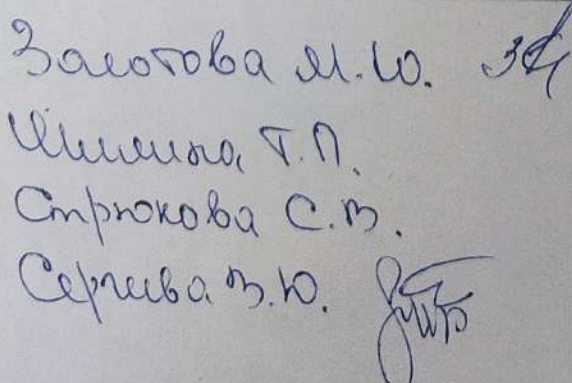 Залотова М.Ю.
Шишина Т.П.
Стрюкова С.В.
Сергиева В.Ю.